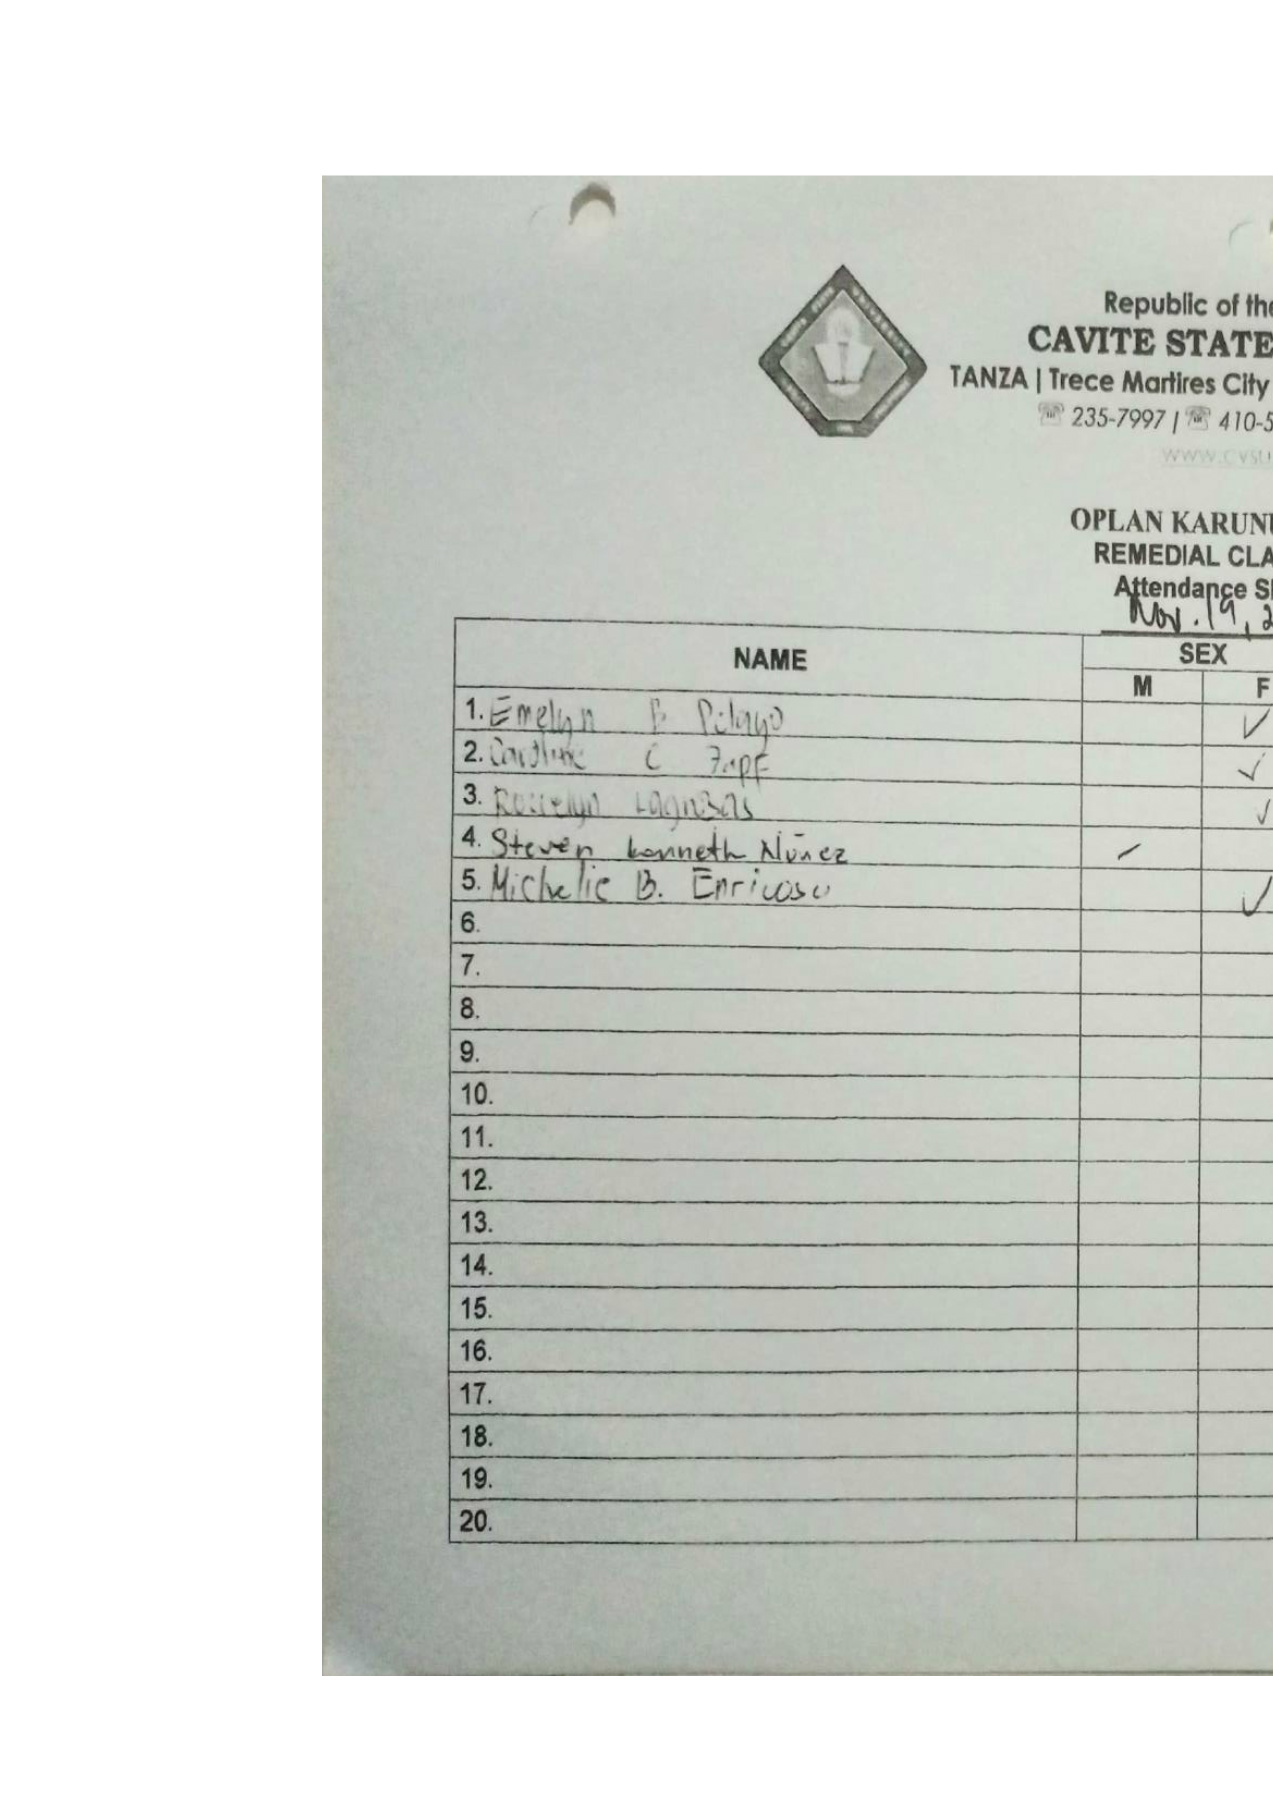 Republic of the
CAVITE STATE
TANZA | Trece Martires City
☏ 235-7997 | ☏ 410-5
www.cvsu
OPLAN KARUN
REMEDIAL CLA
Attendance S
Nov. 19, 2
NAME SEX
M F
1. Emelyn B Pelayo ✓
2. C ✓
3. ✓
4. Steven Kenneth Nuñez
5. Michelle B. Enricoso ✓
6.
7.
8.
9.
10.
11.
12.
13.
14.
15.
16.
17.
18.
19.
20.